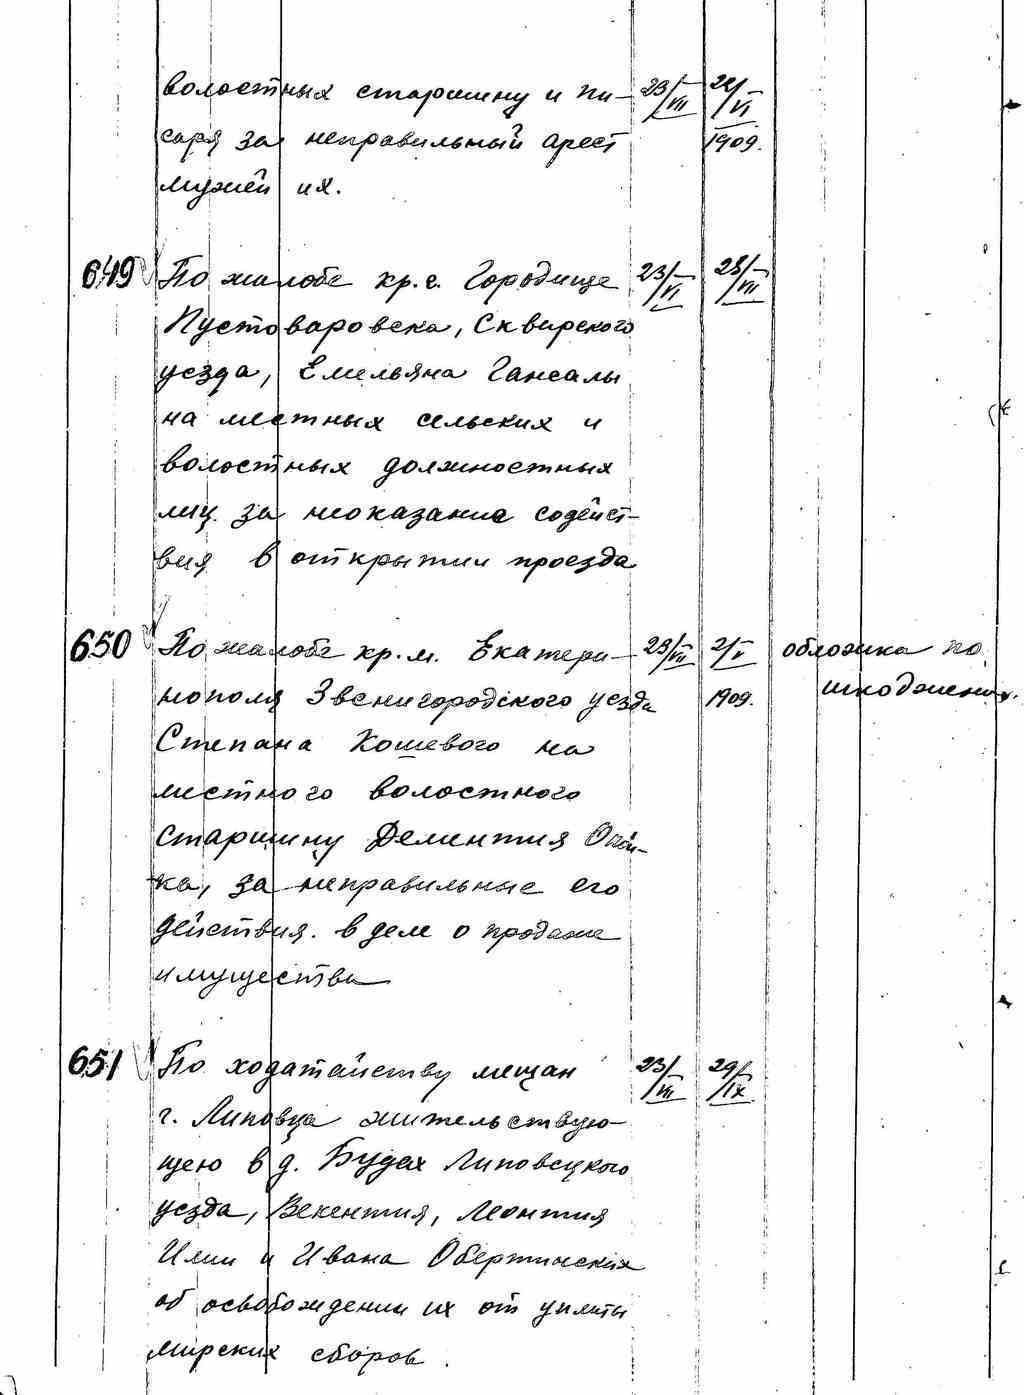 волостных старшину и пи- 23/VII 22/VI
саря за неправильный арест 1909.
мужей их.
649 По жалобе кр. с. Городище 23/VI 28/VIII
Пустоваровска, Сквирского
уезда, Емельяна Гансалы
на местных сельских и
волостных должностных
лиц за неоказание содейст-
вия в открытии проезда
650 По жалобе кр. м. Екатери- 23/VII 2/V обложка по
нополя Звенигородского уезда 1909. шкоджена.
Степана Кошевого на
местного волостного
старшину Дементия Опой-
ка, за неправильные его
действия в деле о продаже
имущества
651 По ходатайству мещан 23/VIII 29/IX
г. Липовца жительствую-
щею в д. Будах Липовецкого
уезда, Векентия, Леонтия
Илии и Ивана Обертинских
об освобождении их от уплаты
мирских сборов.